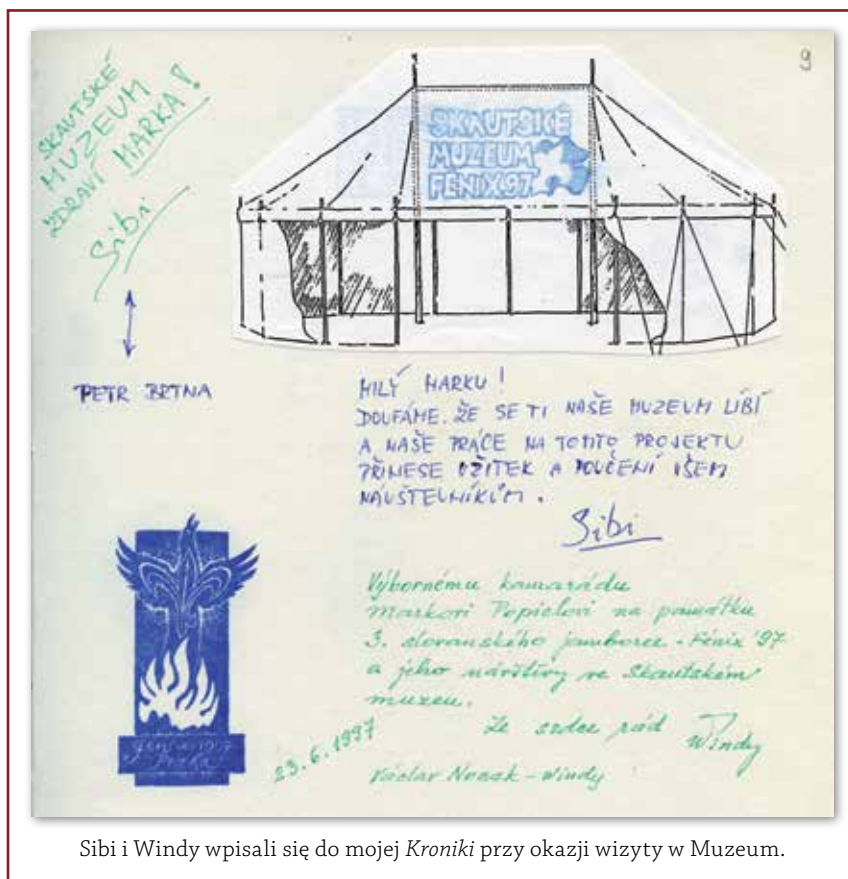 9
SKAUTSKÉ
MUZEUM
ZDRAVÍ MARKA!
Sibi
PETR BRTNA
SKAUTSKÉ
MUZEUM
FÉNIX 97
MILÝ MARKU!
DOUFÁME, ŽE SE TI NAŠE MUZEUM LÍBÍ
A NAŠE PRÁCE NA TOMTO PROJEKTU
PŘINESE UŽITEK A POUČENÍ VŠEM
NÁVŠTEVNÍKŮM.
Sibi
Výbornému kamarádu
Markovi Popielovi na památku
3. slovanského jamboree - Fénix '97
a jeho návštěvy ve Skautském
muzeu.
Ze srdce rád Windy
23.6.1997
Václav Nosek - Windy
Praha
Sibi i Windy wpisali się do mojej Kroniki przy okazji wizyty w Muzeum.